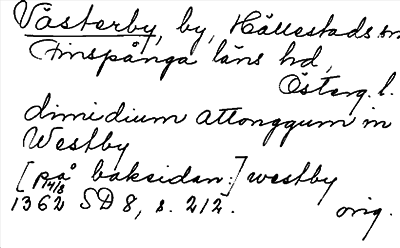 Västerby, by, Hällestads sn
Finspånga läns hd,
Österg. l.
dimidium attonggum in
Westby
[på baksidan:] westby
1362 14/8 SD 8, s. 212. orig.